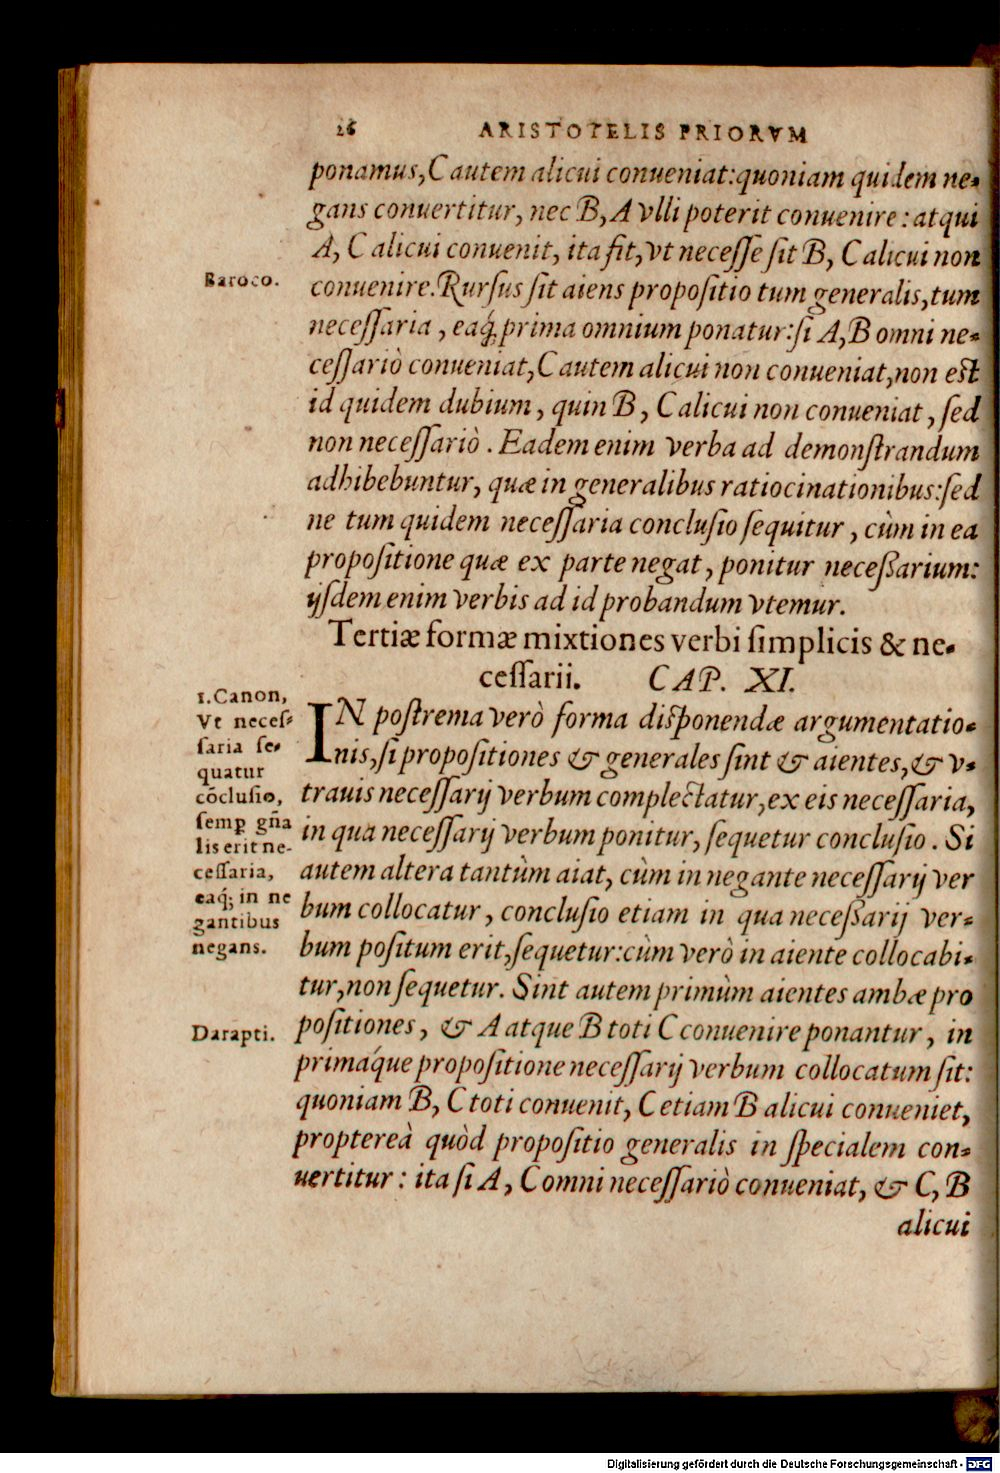 26 ARISTOTELIS PRIORVM
ponamus, C autem alicui conueniat: quoniam quidem ne-
gans conuertitur, nec B, A vlli poterit conuenire: atqui
A, C alicui conuenit, ita fit, vt necesse sit B, C alicui non
Baroco.
conuenire. Rursus sit aiens propositio tum generalis, tum
necessaria, eaq́; prima omnium ponatur: si A, B omni ne-
cessariò conueniat, C autem alicui non conueniat, non est
id quidem dubium, quin B, C alicui non conueniat, sed
non necessariò. Eadem enim verba ad demonstrandum
adhibebuntur, quæ in generalibus ratiocinationibus: sed
ne tum quidem necessaria conclusio sequitur, cùm in ea
propositione quæ ex parte negat, ponitur necessarium:
ijsdem enim verbis ad id probandum vtemur.
Tertiæ formæ mixtiones verbi simplicis & ne-
cessarii. CAP. XI.
1. Canon,
Vt neces-
saria se-
quatur
cōclusio,
semꝑ gña
lis erit ne-
cessaria,
eaq́; in ne
gantibus
negans.
IN postrema verò forma disponendæ argumentatio-
nis, si propositiones & generales sint & aientes, & v-
trauis necessarij verbum complectatur, ex eis necessaria,
in qua necessarij verbum ponitur, sequetur conclusio. Si
autem altera tantùm aiat, cùm in negante necessarij ver
bum collocatur, conclusio etiam in qua necessarij ver-
bum positum erit, sequetur: cùm verò in aiente collocabi-
tur, non sequetur. Sint autem primùm aientes ambæ pro
Darapti.
positiones, & A atque B toti C conuenire ponantur, in
primáque propositione necessarij verbum collocatum sit:
quoniam B, C toti conuenit, C etiam B alicui conueniet,
propterea quòd propositio generalis in specialem con-
uertitur: ita si A, C omni necessariò conueniat, & C, B
alicui
Digitalisierung gefördert durch die Deutsche Forschungsgemeinschaft - DFG